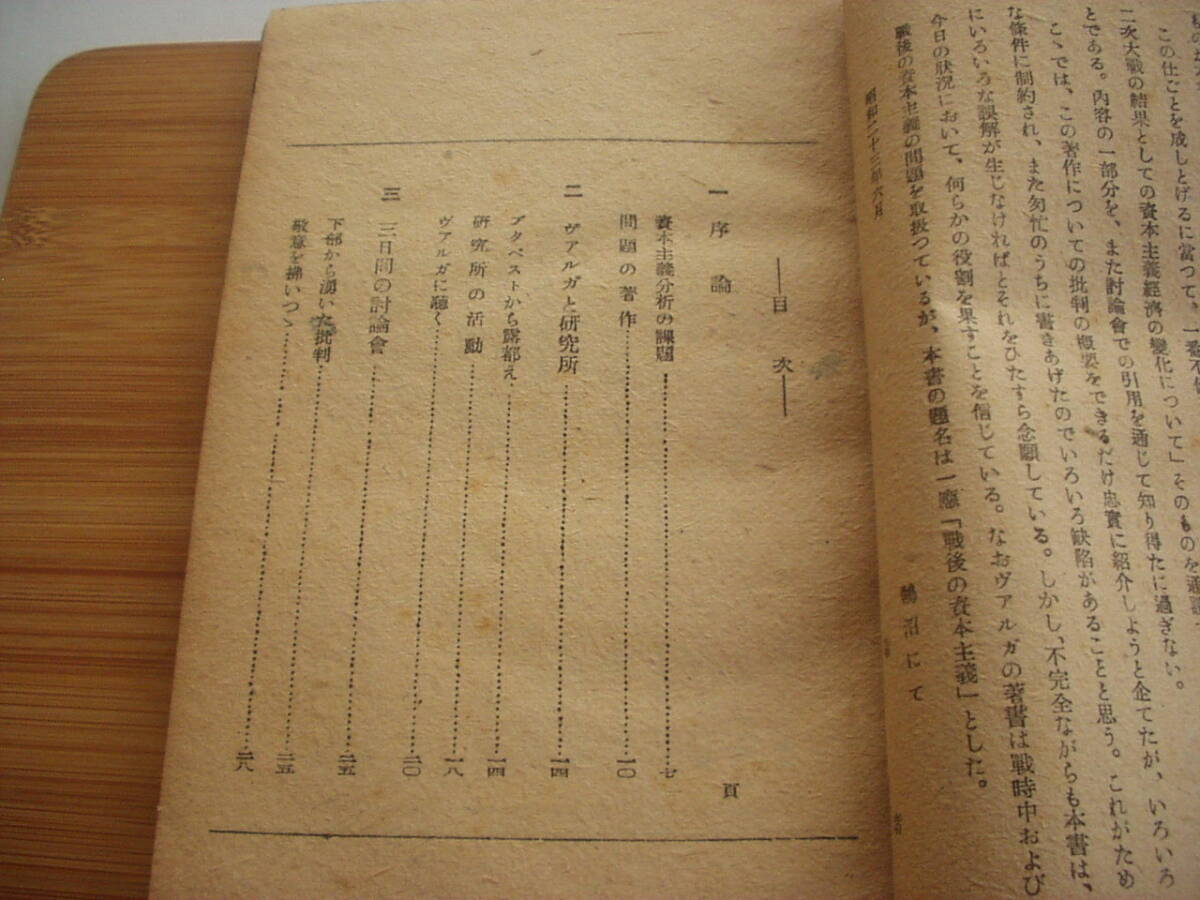 この仕ごとを成しとげるに当つて、一番不
二次大戰の結果としての資本主義經濟の變化について」そのものを通讀
とである。內容の一部分を、また討論會での引用を通じて知り得たに過ぎない。
こゝでは、この著作についての批判の概要をできるだけ忠實に紹介しようと企てたが、いろいろ
な條件に制約され、また匆忙のうちに書きあげたのでいろいろ缺陷があることと思う。これがため
にいろいろな誤解が生じなければとそれをひたすら念願している。しかし、不完全ながらも本書は、
今日の狀況において、何らかの役割を果すことを信じている。なおヴァルガの著書は戰時中および
戰後の資本主義の問題を取扱つているが、本書の題名は一應「戰後の資本主義」とした。
昭和二十三年六月
鵠沼にて
著者
―目次―
頁
一 序論
資本主義分析の課題……七
問題の著作……一〇
二 ヴァルガと研究所……一四
ブタペストから露都え……一四
研究所の活動……一八
ヴァルガに聽く……二〇
三 三日間の討論會……二五
下部から湧いた批判……二五
敬意を拂いつゝ……二八